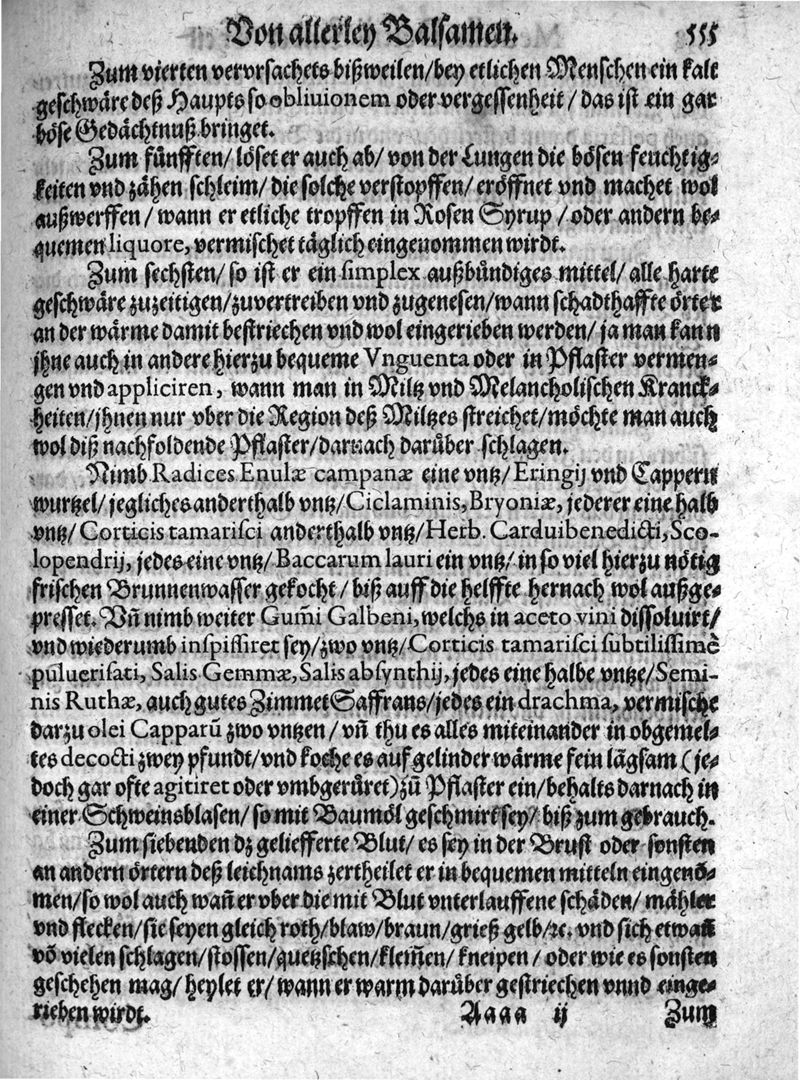 Von allerley Balsamen. 555
Zum vierten vervrsachets bißweilen/bey etlichen Menschen ein kalt
geschwäre deß Haupts so obliuionem oder vergessenheit / das ist ein gar
böse Gedächtnuß bringet.
Zum fünfften/ löset er auch ab/ von der Lungen die bösen feuchtig-
keiten vnd zähen schleim/ die solche verstopffen/ eröffnet vnd machet wol
außwerffen/ wann er etliche tropffen in Rosen Syrup / oder andern be-
quemen liquore, vermischet täglich eingenommen wirdt.
Zum sechsten/ so ist er ein simplex außbündiges mittel/ alle harte
geschwäre zuzeitigen/zuvertreiben vnd zugenesen/wann schadthaffte örter
an der wärme damit bestriechen vnd wol eingerieben werden/ ja man kann
jhne auch in andere hierzu bequeme Vnguenta oder in Pflaster vermen-
gen vnd appliciren, wann man in Miltz vnd Melancholischen Kranck-
heiten/jhnen nur vber die Region deß Miltzes streichet/möchte man auch
wol diß nachfoldende Pflaster/darnach darüber schlagen.
Nimb Radices Enulæ campanæ eine vntz/ Eringij vnd Cappern
wurtzel/ jegliches anderthalb vntz/ Ciclaminis, Bryoniæ, jederer eine halb
vntz/ Corticis tamarisci anderthalb vntz/ Herb. Carduibenedicti, Sco-
lopendrij, jedes eine vntz/ Baccarum lauri ein vntz/ in so viel hierzu nötig
frischen Brunnenwasser gekocht / biß auff die helffte hernach wol außge-
presset. Vñ nimb weiter Gum̃i Galbeni, welchs in aceto vini dissoluirt/
vnd wiederumb inspissiret sey/zwo vntz/Corticis tamarisci subtilissimẽ
puluerisati, Salis Gemmæ, Salis absynthij, jedes eine halbe vntze/Semi-
nis Ruthæ, auch gutes Zimmet Saffrans/jedes ein drachma, vermische
darzu olei Capparũ zwo vntzen / vñ thu es alles miteinander in obgemel-
tes decocti zwey pfundt/vnd koche es auf gelinder wärme fein lãgsam (je-
doch gar ofte agitiret oder vmbgerüret) zũ Pflaster ein/behalts darnach in
einer Schweinsblasen/ so mit Baumöl geschmirt sey/ biß zum gebrauch.
Zum siebenden dz geliefferte Blut/ es sey in der Brust oder sonsten
an andern örtern deß leichnams zertheilet er in bequemen mitteln eingenõ-
men/so wol auch wañ er vber die mit Blut vnterlauffene schäden/ mähler
vnd flecken/sie seyen gleich roth/blaw/braun/grieß gelb/ꝛc. vnd sich etwañ
võ vielen schlagen/stossen/quetzschen/klem̃en/ kneipen / oder wie es sonsten
geschehen mag/ heylet er/ wann er warm darüber gestriechen vnnd einge-
rieben wirdt. Aaaa ij Zum